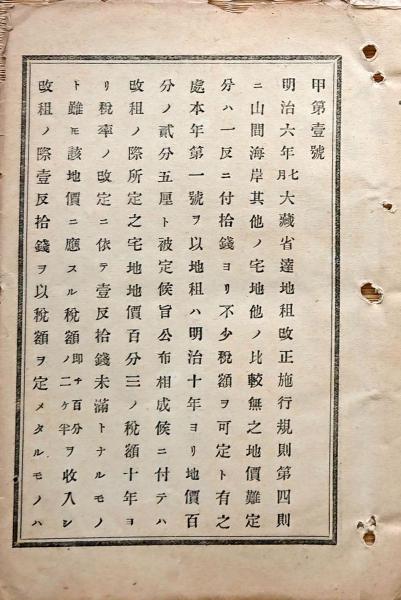 甲第壹號
明治六年七月大藏省達地租改正施行規則第四則
ニ山間海岸其他ノ宅地他ノ比較無之地價難定
分ハ一反ニ付拾錢ヨリ不少税額ヲ可定ト有之
處本年第一號ヲ以地租ハ明治十年ヨリ地價百
分ノ貳分五厘ト被定候旨公布相成候ニ付テハ
改租ノ際所定之宅地地價百分三ノ税額十年ヨ
リ税率ノ改定ニ依テ壹反拾錢未滿トナルモノ
ト雖モ該地價ニ應スル税額即チ百分ノ二ケ半ヲ收入シ
改租ノ際壹反拾錢ヲ以税額ヲ定メタルモノハ